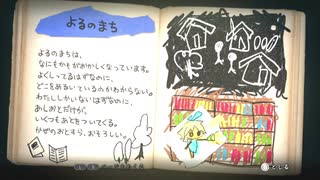 よるのまち
よるのまちは、
なにもかもがおかしくなっています。
よくしってるはずなのに、
どこをあるいているのかわからない。
わたししかいないはずなのに、
あしおとだけが、
いくつもあとをついてくる。
かぜのおとすら、おそろしい。
とじる